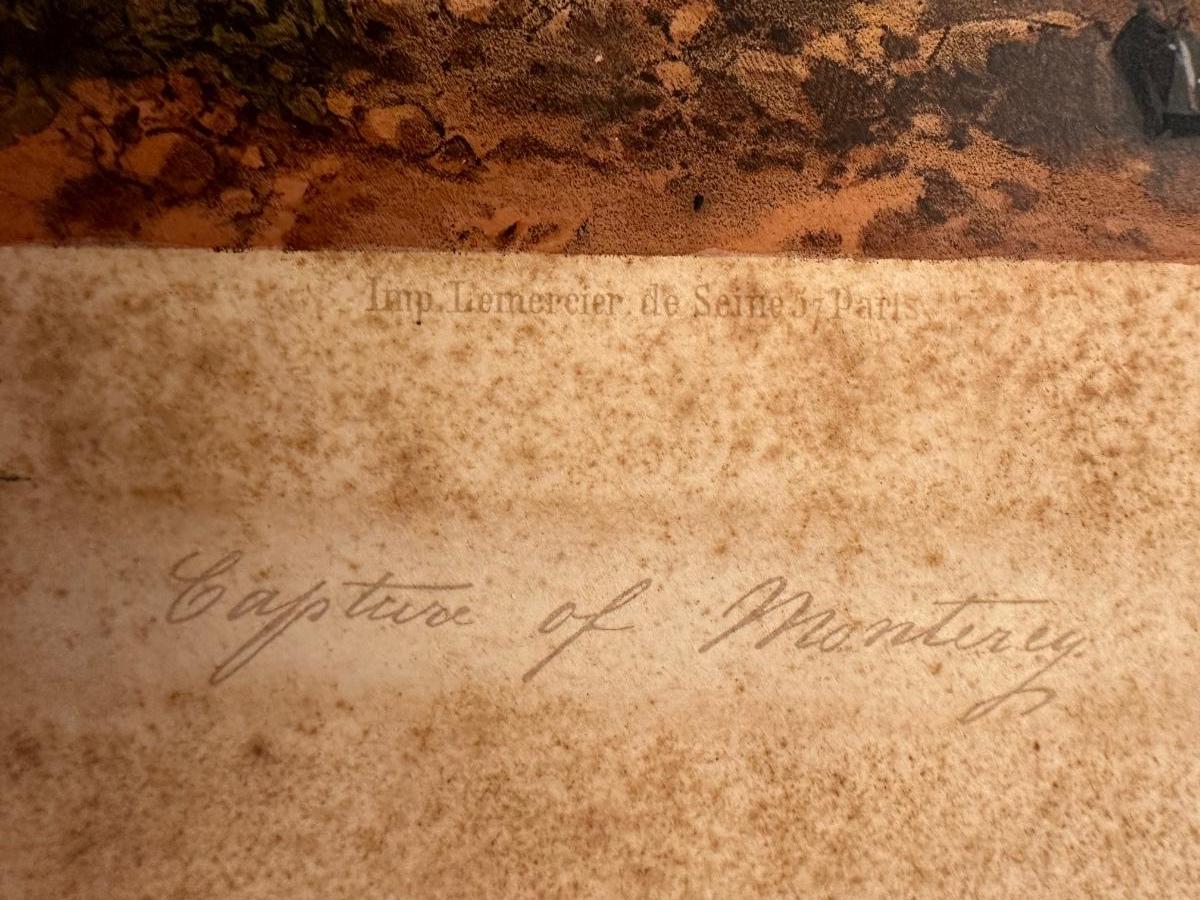 Imp. Lemercier de Seine 57 Paris
Capture of Monterey.